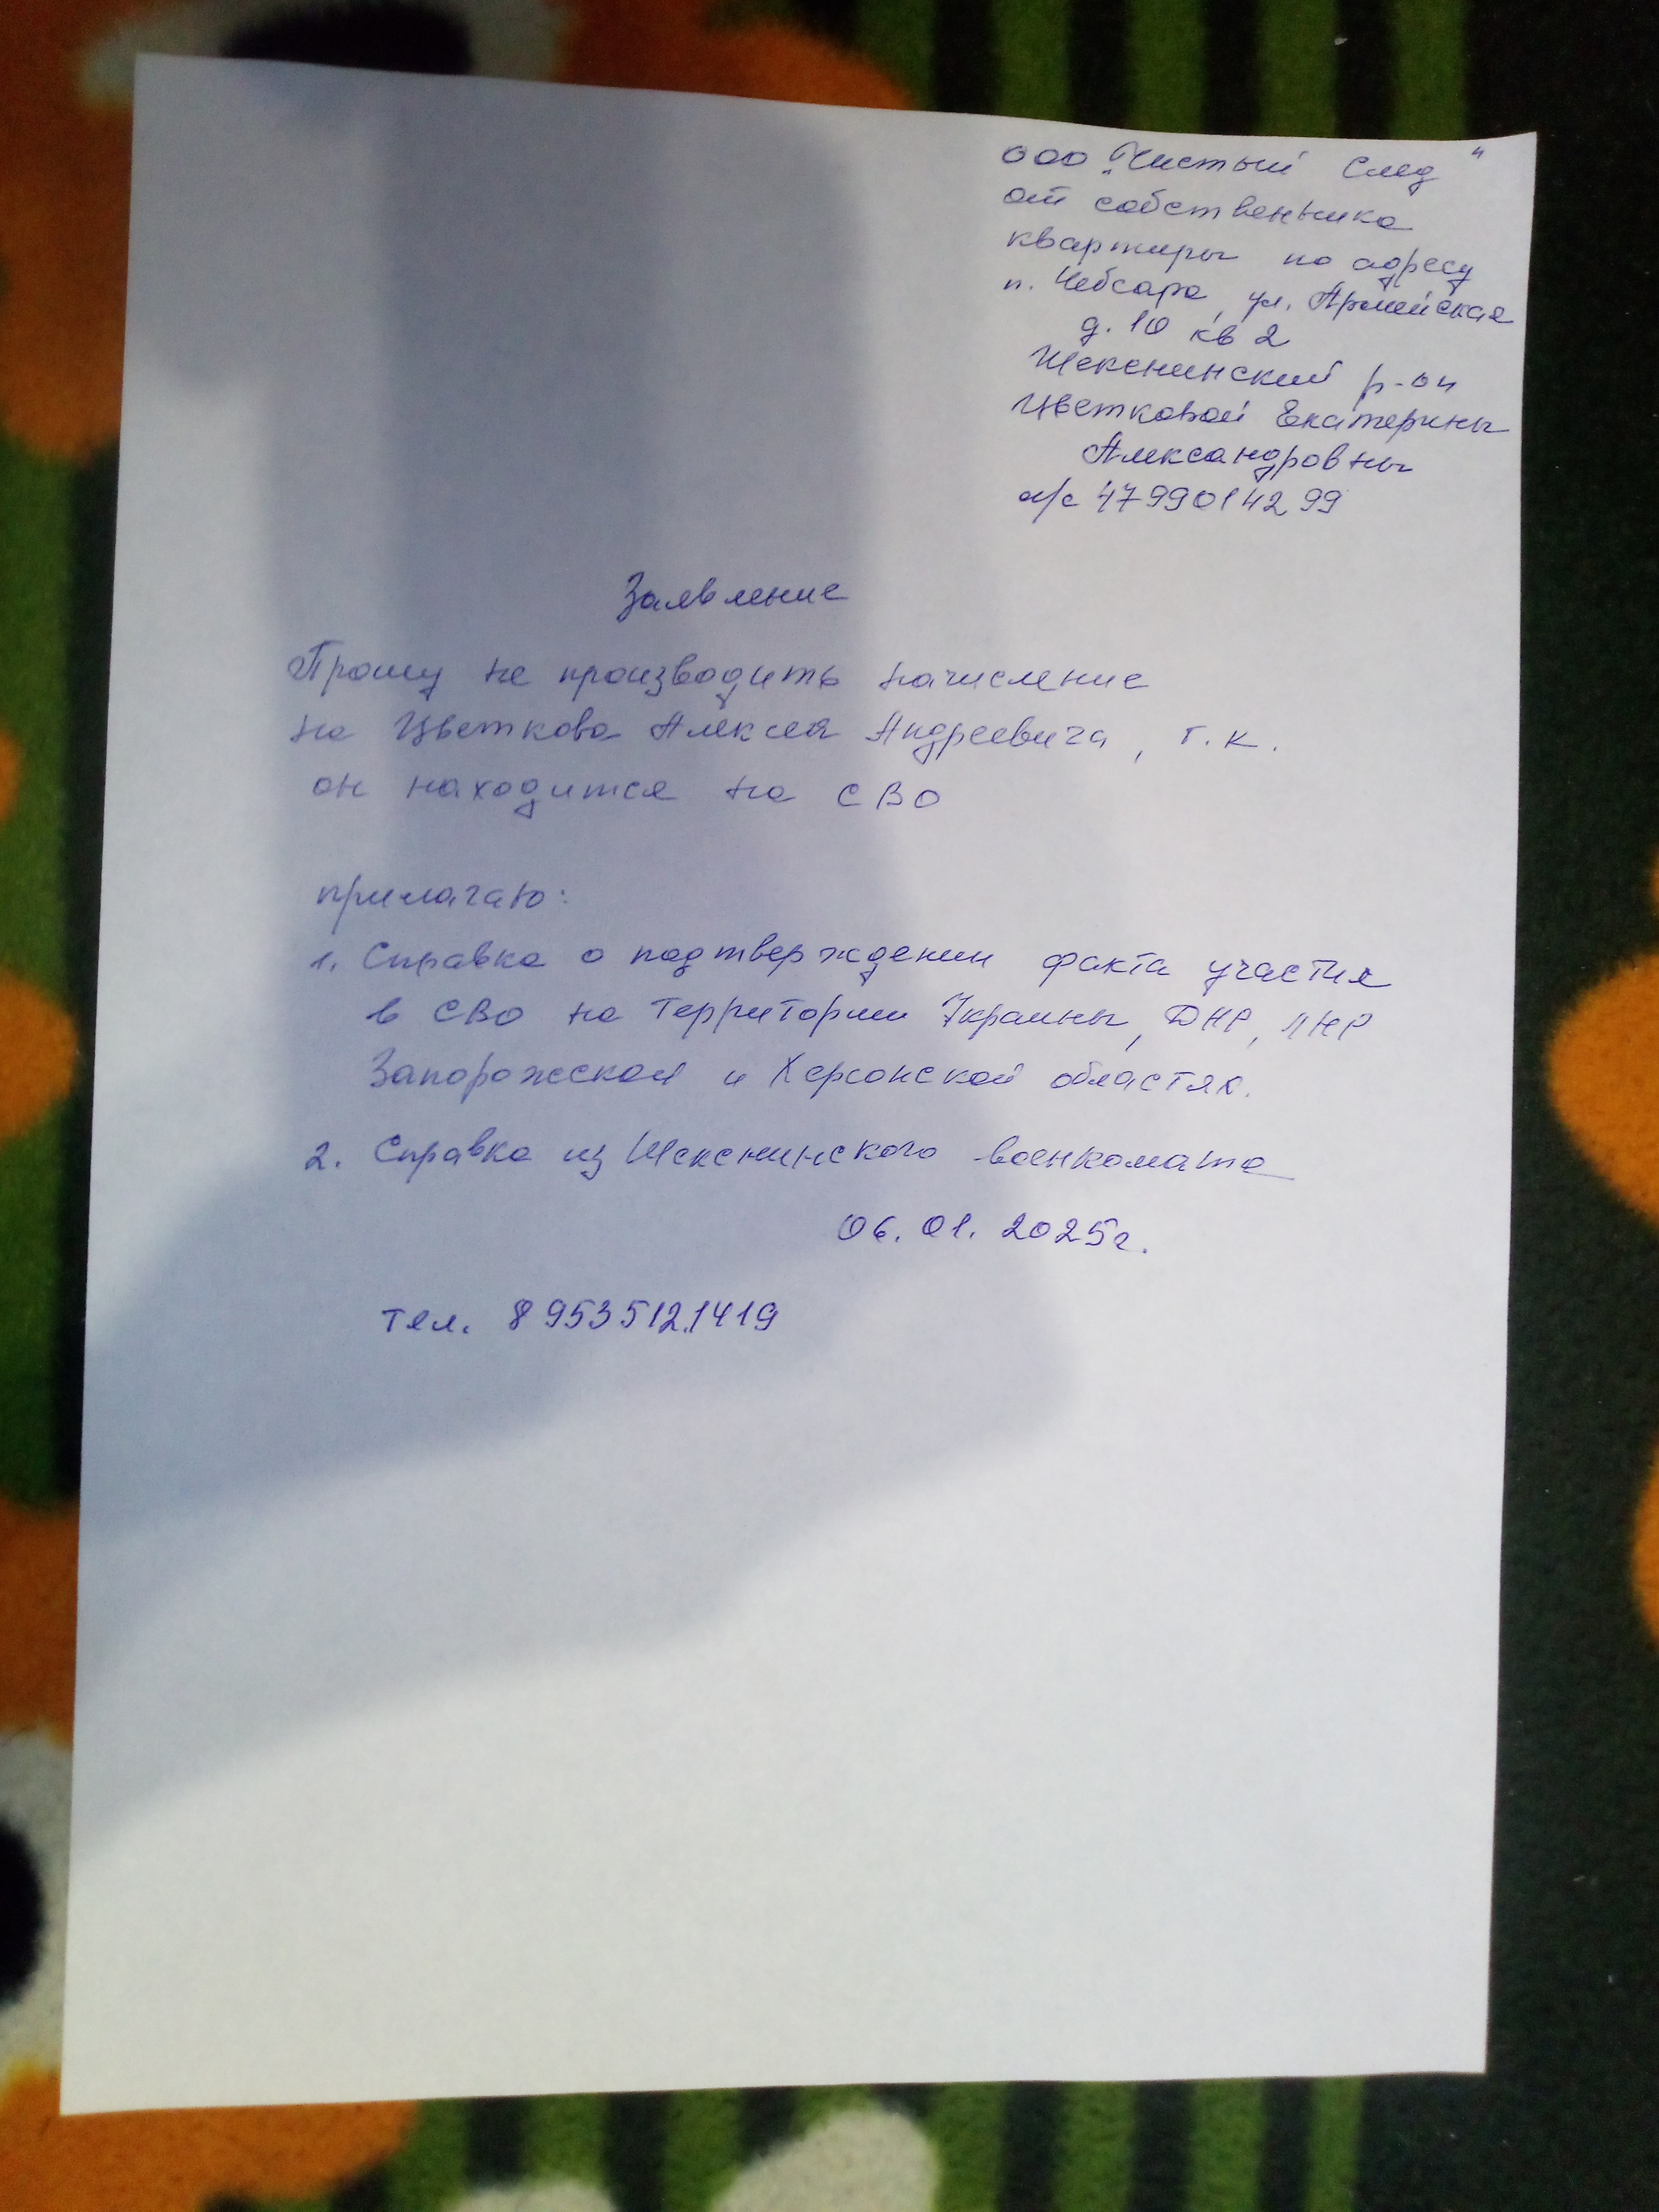 ООО "Чистый след"
от собственика
квартиры по адресу
п. Чебсара, ул. Армейская
д. 10 кв 2
Шекснинский р-он
Цветковой Екатерины
Александровны
л/с 4799014299
Заявление
Прошу не производить начисление
на Цветкова Алексея Андреевича, т.к.
он находится на СВО
прилагаю:
1. Справка о подтверждении факта участия
в СВО на территории Украины, ДНР, ЛНР
Запорожской и Херсонской областях.
2. Справка из Шекснинского военкомата
06.01.2025г.
тел. 89535121419